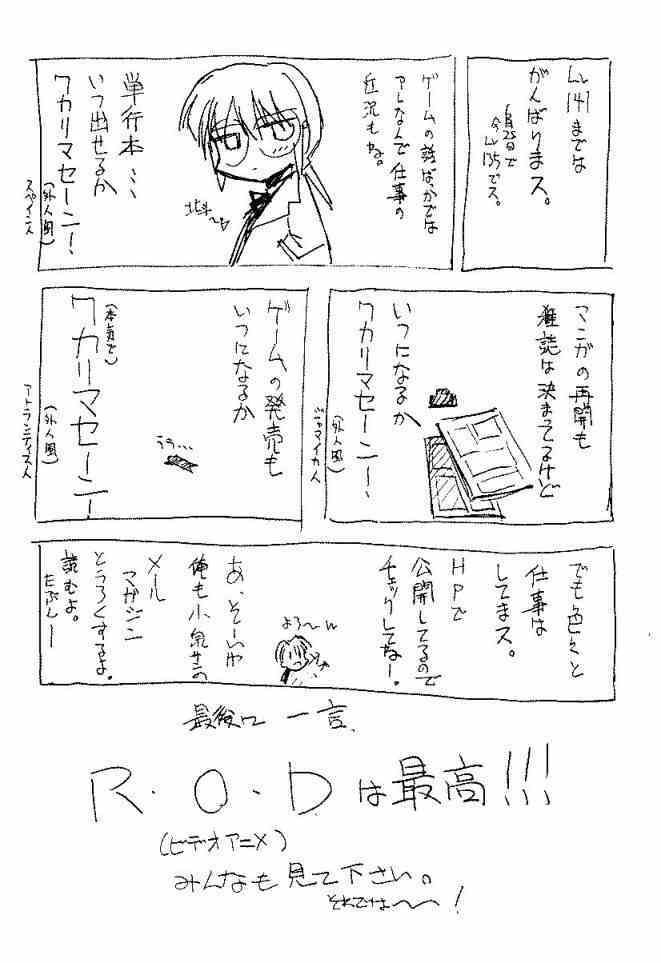 Lv 141までは
がんばりまス。
6月25日で
今Lv135でス。
ゲームの話ばっかでは
アレなんで仕事の
近況もね。
単行本…
いつ出せるか
ワカリマセーン!
(外人風)
スペイン人
マンガの再開も
雑誌は決まってるけど
いつになるか
ワカリマセーン!
(外人風)
ジャマイカ人
ゲームの発売も
いつになるか
ワカリマセーン!
(本気で)
(外人風)
アトランティス人
うう…
でも色々と
仕事は
してまス。
HPで
公開してるので
チェックしてなー!
よろ〜
あ、そーいや
俺も小泉サンの
メール
マガジン
とうろくするよ。
読むよ。
たぶんー
最後に一言、
R・O・Dは最高!!!
(ビデオアニメ)
みんなも見て下さい。
それでは〜〜!